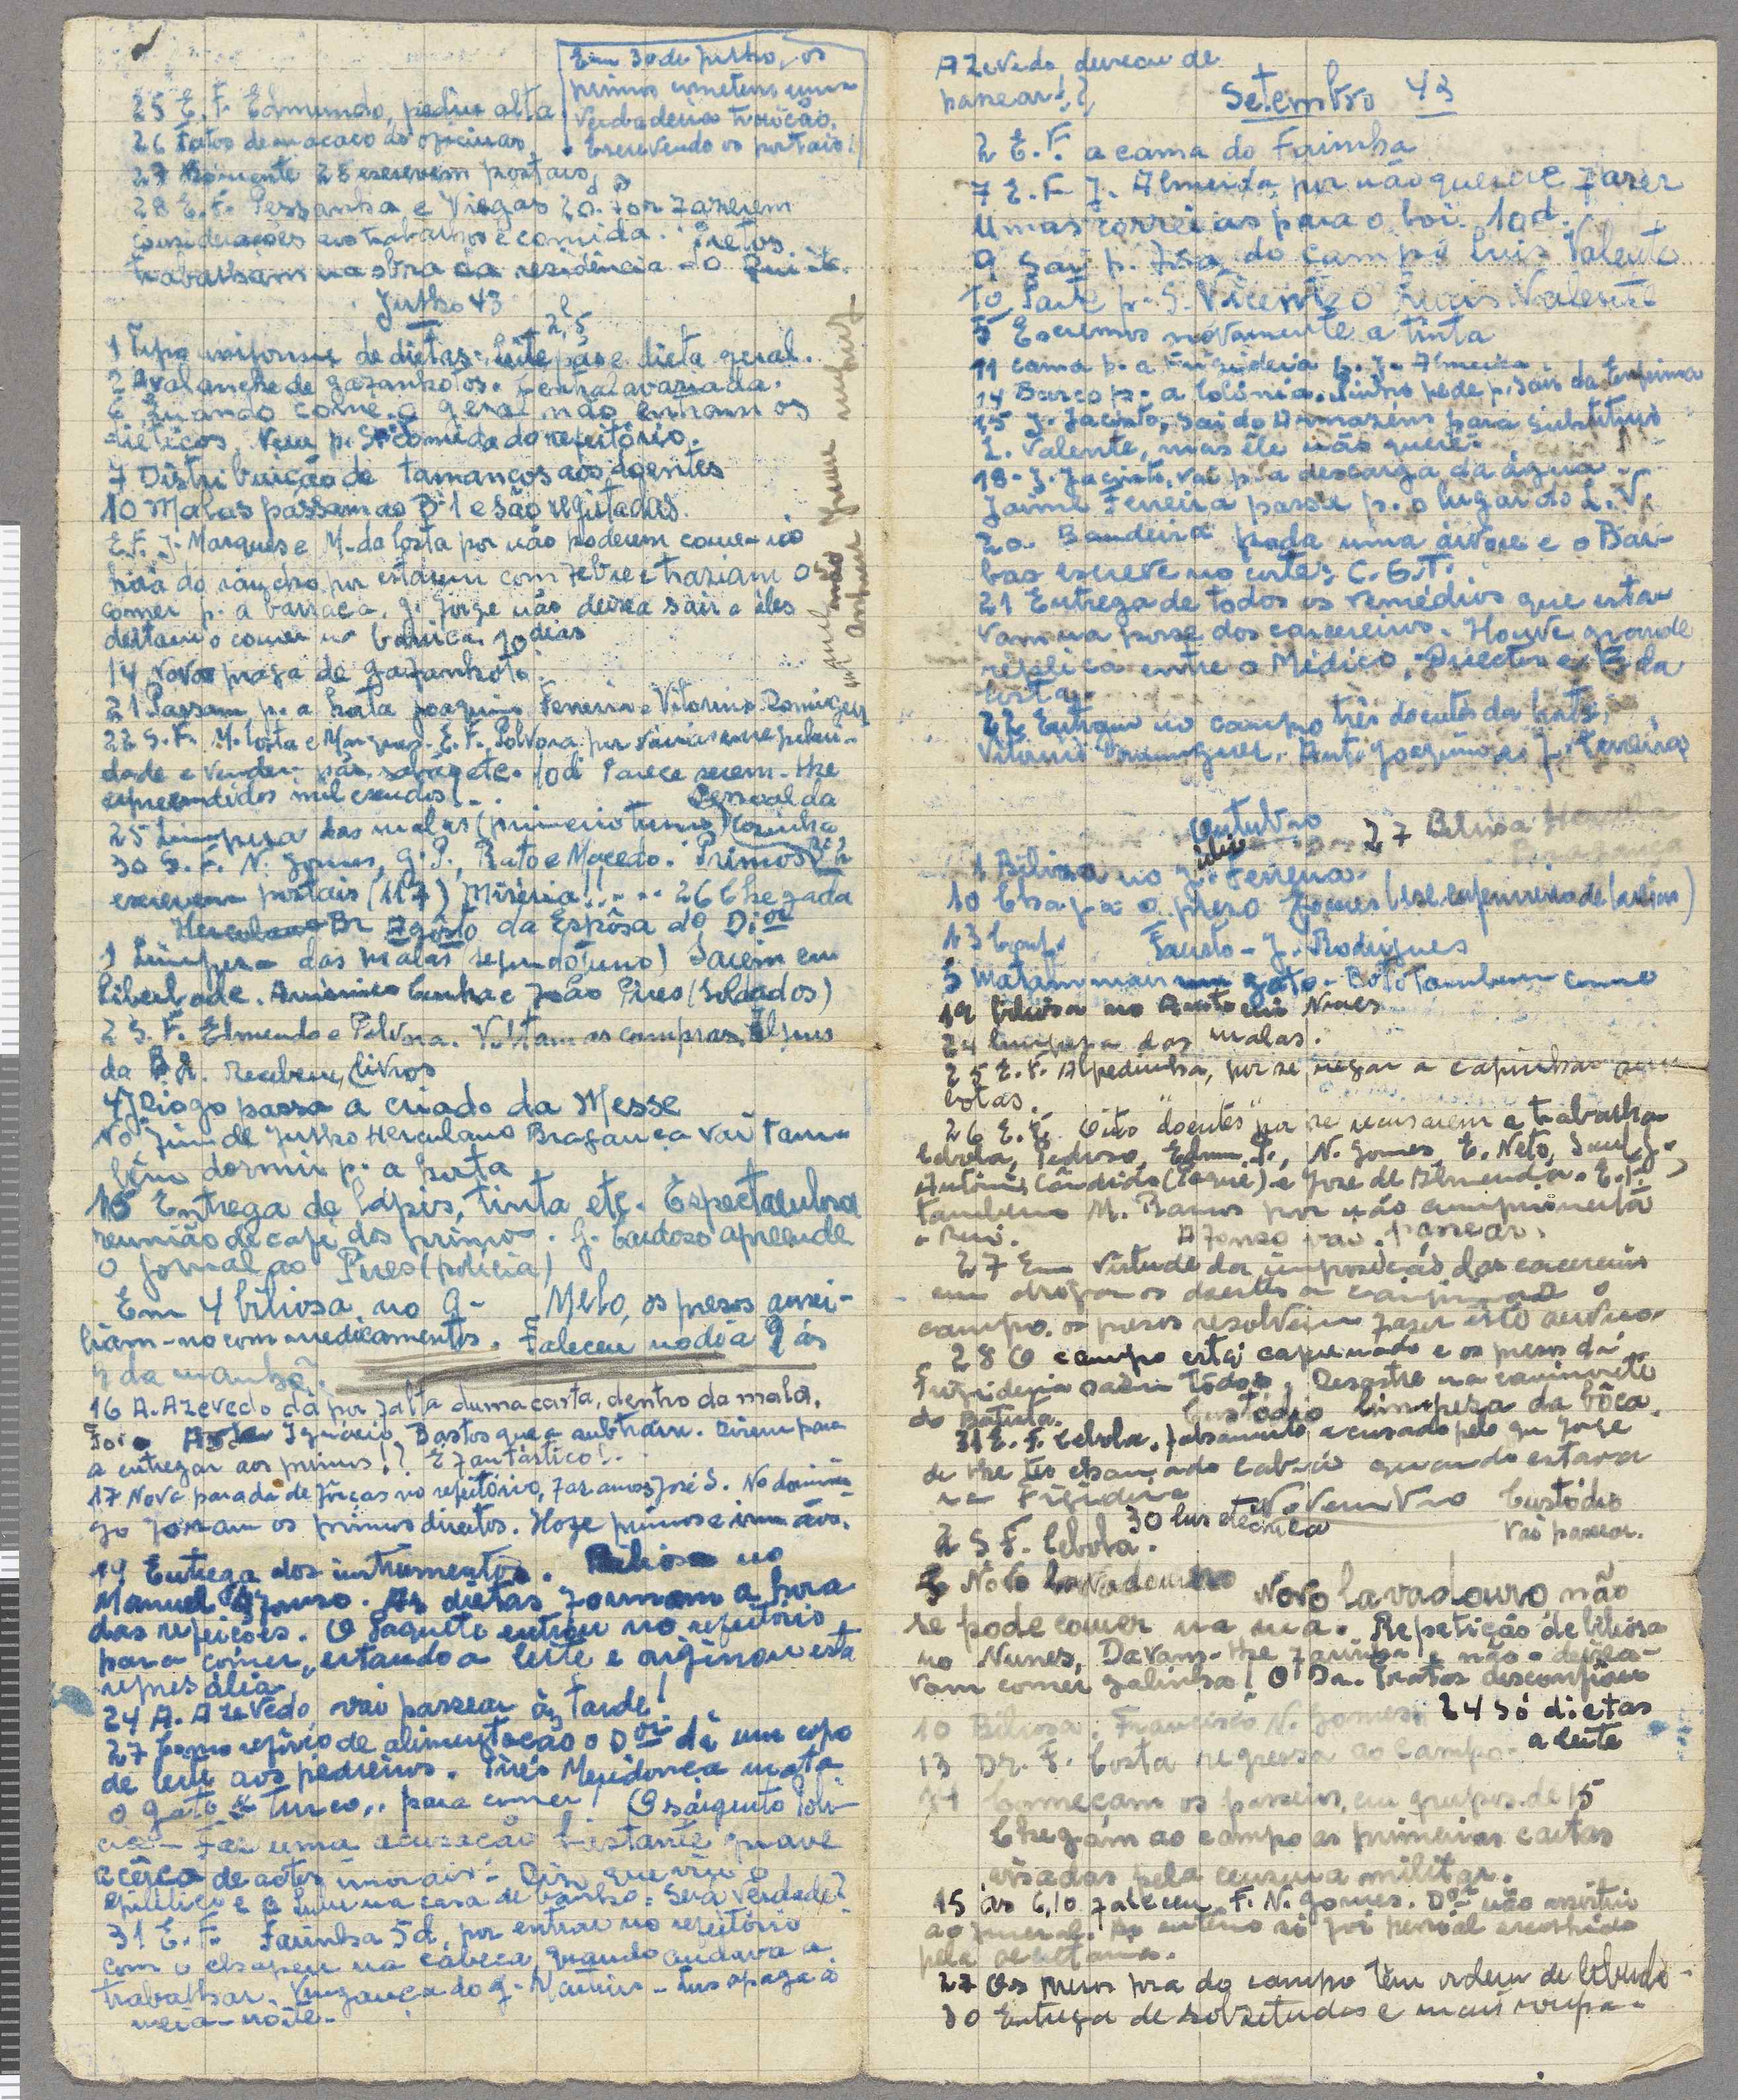 Em 30 de julho, os
primos cometem uma
verdadeira traição.
Escrevendo os postais!
25 E. F. Edmundo, pediu alta
26 Fatos de macaco ás oficinas
27 Sòmente 28 escrevem postais
28 E. F. Pessanha e Viegas 20 d. por fazerem
considerações aos trabalhos e comida. Pretos
trabalham na obra da residência do
Julho 43
1 Tipo uniforme de dietas: leite pão e dieta geral.
2 Avalanche de gafanhotos. Central avariada.
6 Quando come o geral não entram os
dietéticos. Vem p. S. comida do refeitório.
7 Distribuição de tamancos aos doentes
10 Malas passam ao B-1 e são registadas.
E. F. J. Marques e M. da Costa por não poderem comer no
hora do rancho por estarem com febre e traziam o
comer p. a barraca. G. Jorge não deixa sair e êles
deitam o comer na barrica 10 dias
14 Nova praga de gafanhoto.
21 Passam p. a horta Joaquim Ferreira e Vitorino Domingues
22 S. F. M. Costa e Marques. E. F. Polvora por
dade e vender pão, sabão etc. 10 d. Parece serem-lhe
apreendidos mil escudos!..
25 Limpesa das malas (primeiro turno) Pessoal da Cozinha
30 S. F. N. Gomes, G. P., Rato e Macedo. Primos
escrevem postais (117) Miséria!!... 26 Chegada
da Espôsa do Dior
Agôsto
1 Limpesa das malas (segundo turno) Saem em
liberdade. Américo Cunha e João Pires (Soldados)
2 S. F. Edmundo e Polvora. Voltam as compras. Alguns
da B 2. recebem livros
4 Diogo passa a criado da Messe
No fim de Julho Herculano Bragança vai tam-
bém dormir p. a horta
15 Entrega de lápis, tinta etc. Espectaculosa
reunião de café dos primos. G. Cardoso apreende
o jornal ao Pires (polícia)
Em 4 biliosa no G- Melo, os presos auxi-
liam-no com medicamentos. Faleceu no dia 9 ás
4 da manhã.
16 A. Azevedo dá por falta duma carta, dentro da mala.
Foi o Inácio Bastos que a subtraiu. Dizem para
a entregar aos primos!? É fantástico!..
17 Nova parada de fôrças no refeitório, faz anos José S. No domin-
go foram os primos direitos. Hoje primos e irmãos.
19 Entrega dos instrumentos. Biliosa no
Manuel Afonso. As dietas formam a hora
das refeições. O Saquete entrou no refeitório
para comer, estando a leite e originou esta
represália.
24 A. Azevedo vai passear à tarde!
27 Como refôrço de alimentação o Dior dá um copo
de leite aos pedreiros. Pirés Mendonça mata
o gato "turco", para comer! O sargento Polí-
cia - Faz uma acusação bastante grave
acêrca de actos imorais. Diz que viu o
epilético e o na casa de banho. Será verdade?
31 E. F. Farinha 5 d. por entrar no refeitório
com o chapeu na cabeça, quando andava a
trabalhar. Vingança do g. Martins - Luz apaga à
meia-noite.
Azevedo deixou de
passear!?
Setembro 43
2 E. F. a cama do Farinha
7 E. F. J. Almeida, por não querer fazer
umas correias para o boi. 10 d.
9 Sai p. fora do Campo Luis Valente
10 Parte p. S. Vicente o Luis Valente
5 Escrevemos novamente a tinta
11 cama p. a Frigideira p. J. Almeida
14 Barco p. a Colónia. Pinho pede p. sair da Enfermaria
15 J. Jacinto, sai do Armazém para substituir
L. Valente, mas êle não quere.
18 - J. Jacinto, vai p. a descarga da água.
Jaime Ferreira passa p. o lugar do L. V.
20. Bandeira poda uma árvore e o Bar-
bas escreve no corte: C. G. T.
21 Entrega de todos os remédios que esta-
vam na posse dos carcereiros. Houve grande
replica entre o Médico, Director e F. da
Costa.
22 Entram no campo três doentes da horta,
Vitorino Domingues, Ant. Joaquim e J. Ferreira
Outubro
27 Biliosa
1 Biliosa no J. Ferreira.
10 Chapa o preso Gomes (ex. enfermeiro de Caxias)
13 Fausto - J. Rodrigues
5 Matam mais um gato. Boto tambem come
19 biliosa no Antonio Nunes
24 limpesa das malas.
25 E. F. Alpedrinha, por se negar a capinhar sem
botas.
26 E. F. Oito "doentes" por se recusarem a trabalhar
Cebola, Pedroso, Edm. F., N. Gomes, E. Neto, Saul G.
António Cândido (Coque) e José de Almeida. E. F.
tambem M. Ramos por não cumprimentar
Afonso vai passear.
27 Em virtude da imposição dos carcereiros
em obrigar os doentes a capinar o
campo. os presos resolvem fazer êste serviço
28 O campo está capinado e os presos da
Frigideira saem todos. Desastre na camionete
do Batista. Custódio limpesa da bôca.
31 E. F. Cebola, falsamente acusado pelo gu. Jorge
de lhe ter chamado cabrão quando estava
na Frigideira
Novembro
Custódio
vai passear.
30 luz eléctrica
2 S. F. Cebola.
Novo lavadouro não
se pode comer na rua. Repetição de biliosa
no Nunes, Davam-lhe farinha e não o deixa-
vam comer galinha! O Dr. Pratas desconfiou
10 Biliosa: Francisco N. Gomes. 24 só dietas
a leite
13 Dr. F. Costa regressa ao Campo.
Começam os passeios, em grupos de 15
Chegam ao campo as primeiras cartas
visadas pela censura militar.
15 às 6,10 faleceu F. N. Gomes. Dor não assistiu
ao funeral. Ao enterro só foi pessoal escolhido
pela secretaria.
27 Os presos fora do campo têm ordem de liberdade
30 Entrega de sobretudos e mais roupa.